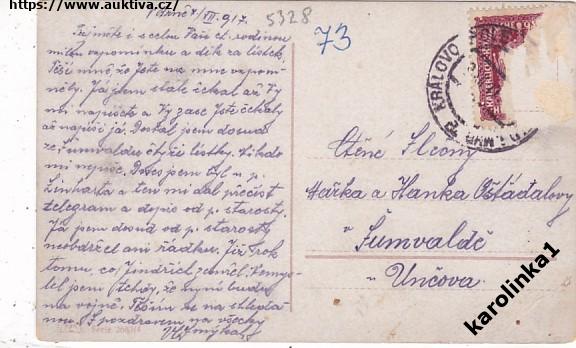 https://www.auktiva.cz/
V Brně 7/VII. 917.
5328
73
Přijměte i s celou Vaší ct. rodinou
milou vzpomínku a dík za lístek.
Těší mně, že jste na mne vzpom-
něly. Já jsem stále čekal až Vy
mi napíšete a Vy zase jste čekaly
až napíši já. Dostal jsem dosud
ze Šumvaldu čtyři lístky. Nikdo
mi nepíše. Dnes jsem byl u p.
Linharta a ten mi dal přečíst
telegram a dopis od p. starosty.
Já jsem dosud od p. starosty
neobdržel ani řádku. Již rok
tomu, co Jindřich zemřel. Nemys-
lel jsem tehdy, že nyní budu
na vojně. Těším se na shledá-
nou. S pozdravem na všecky
KRÁLOVO
Ctěné Slečny
Mařka a Hanka Ošťádalovy
v Šumvaldě
u Unčova
karolinka1